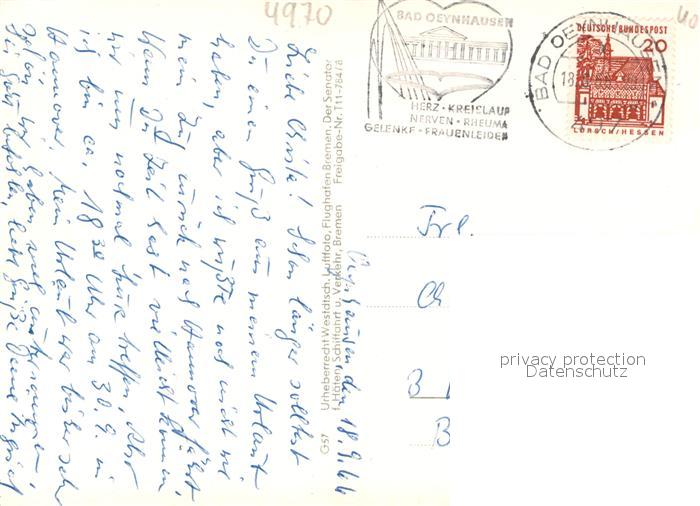 4970
40
BAD OEYNHAUSEN
HERZ · KREISLAUF
NERVEN · RHEUMA
GELENKE · FRAUENLEIDEN
BAD OEYNHAUSEN
18.
DEUTSCHE BUNDESPOST
20
LORSCH/HESSEN
Oeynhausen, den 18.9.66
Liebe Christa! Schon längst solltest
Du einen Gruß aus meinem Urlaub
haben, aber ich wußte noch nicht wie
mein Zug zurück nach Hannover fährt.
Wenn Du Zeit hast vielleicht können
wir uns nochmal kurz treffen, Also
ich bin ca. 18 30 Uhr am 30.9. in
Hannover. Mein Urlaub war bisher sehr
schön, wir haben viel unternommen,
liebe Grüße Deine Ingrid
G57 Urheberrecht Westdtsch. Luftfoto, Flughafen Bremen. Der Senator
f. Häfen, Schiffahrt u. Verkehr, Bremen Freigabe-Nr. T11-784/8
Frl.
Ch
B
B
privacy protection
Datenschutz